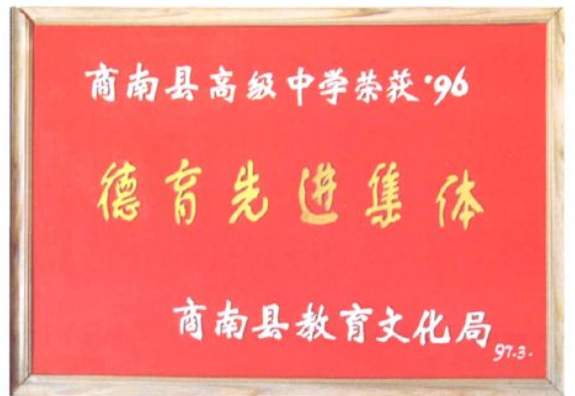 商南县高级中学荣获'96
德育先进集体
商南县教育文化局
97.3.